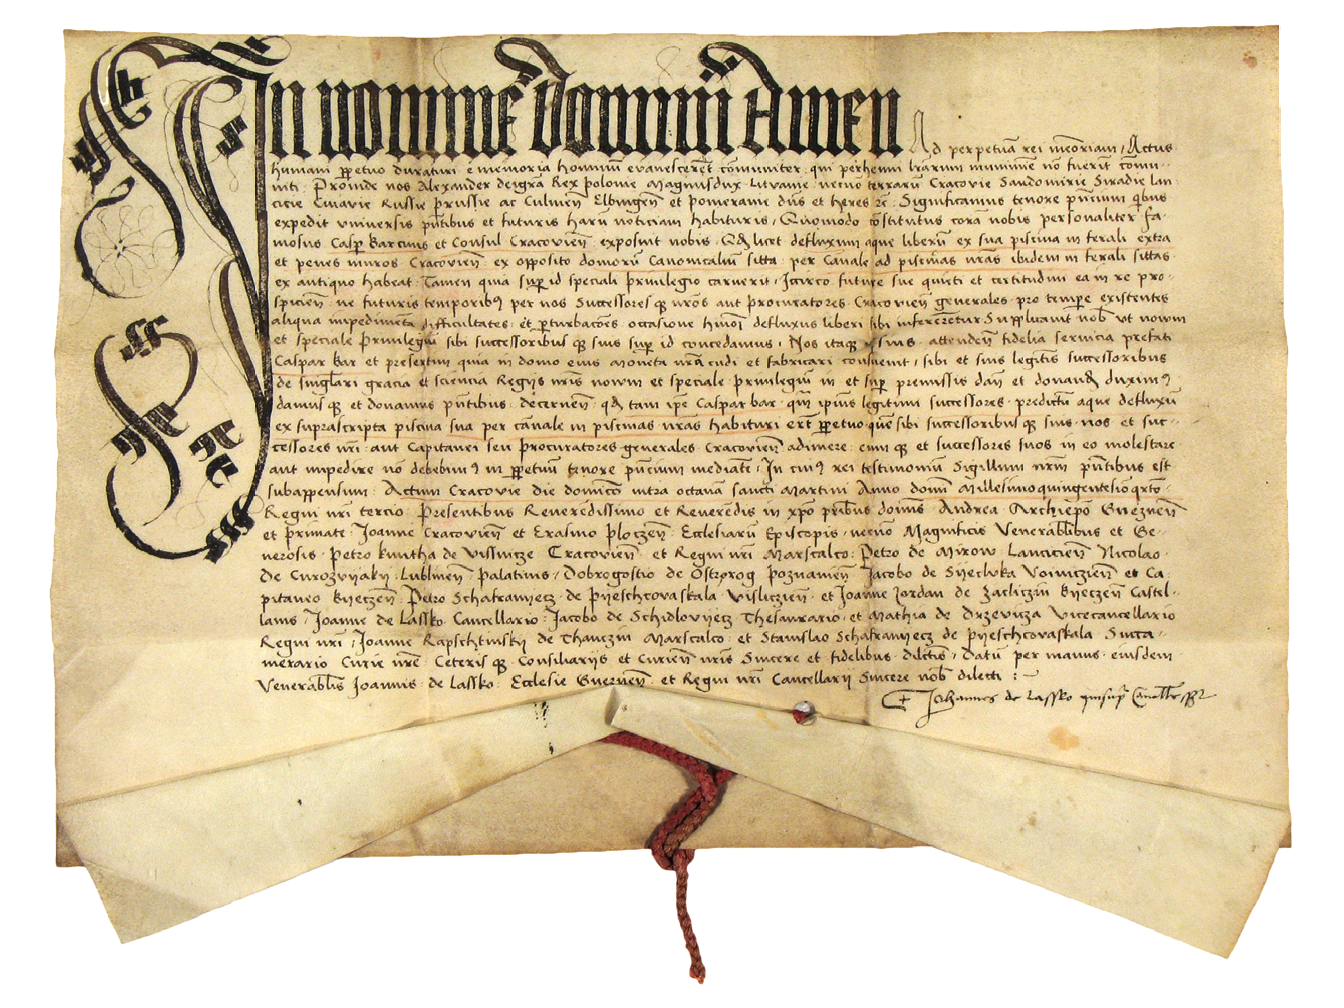 In nomine domini Amen Ad perpetuā rei meoriam Actus
humani ppetuo duraturi e memoria hominū evanescerēt cōmuniter qui perhenni lrārum munimine nō fuerint cōmu
niti Proinde nos Alexander deigrā Rex polonie Magnusdux Litvanie necnō terrarū Cracovie Sandomirie Siradie Lan
cicie Cuiavie Russie prussie ac Culmen̄ Elbingen̄ et pomeranie dn̄s et heres rē Significamus tenore pn̄cium qbus
expedit universis pn̄tibus et futuris harū noticiam habituris Quomodo cōstitutus corā nobis personaliter fa
mosus Caspar Barcuus et Consul Cracovien̄ exposuit nobis Qđ licet defluxum aque liberū ex sua piscina in ferali extra
et penes muros Cracovien̄ ex opposito domorū Canonicaliū sitta per Canale ad piscinas nrās ibidem in ferali sittas
ex antiquo habeat Tamen quia sup id speciali privilegio caruerit Icirco future sue quieti et certitudini ea in re pro
spicien̄ ne futuris temporibus per nos Successores qꝫ nrōs aut Procuratores Cracovien̄ generales pro tempore existentes
aliqua impedimēta difficultates et pturbacōes occasione hmōi defluxus liberi sibi inferērētur Supplicavit nob ut novum
et speciale privilegiū sibi successoribus qꝫ suis sup id concedamus Nos itaqꝫ attenden̄ fidelia servicia prefati
Caspar bar et presertim quia in domo eius moneta nrā cudi et fabricari consuevit sibi et suis legittis successoribus
de singlari gracia et sciencia Regiis nris novum et speciale privilegiū in et sup premissis dan̄ et donand duximꝰ
damus qꝫ et donamus pn̄tibus decernen̄ qđ tam ipe Caspar bar qm ipius legitimi successores predictū aque defluxū
ex suprascripta piscina sua per canale in piscinas nrās habituri erūt ppetuo quē sibi successoribus qꝫ suis nos et suc
cessores nri aut Capitanei seu procuratores generales Cracovien̄ adimere eum qꝫ et successores suos in eo molestare
aut impedire nō debebimꝰ in ppetuū tenore pn̄cium mediate In cuiꝰ rei testimoniū Sigillum nrm pn̄tibus est
subappensum Actum Cracovie die dominico intra octavā sancti Martini Anno domi Millesimoquingentesioqrto
Regni nri tercio Presentibus Reverēdissimo et Reverēdis in xpo pribus domis Andrea Archiepo Gneznen̄
et primate Joanne Cracovien̄ et Erasmo Ploczen̄ Ecclesiarū Episcopis necnō Magnificis Venerabilibus et Ge
nerosis Petro kmitha de Vissnicze Cracovien̄ et Regni nri Marscalco Petro de Mirow Lancicien̄ Nicolao
de Curozvijaky Lublinen̄ palatinis Dobrogostio de Ostrorog poznanien̄ Jacobo de Sijecluka Voiniczien̄ et Ca
pitaneo kijeczen̄ Petro Schaframijecz de pijeschcovaskala Visliczien̄ et Joanne Jordan de Zacliczin kijeczen̄ Castel
lanis Joanne de Lassko Cancellario Jacobo de Schidlovijecz Thesaurario et Mathia de Drzevicza Vicecancellario
Regni nri Joanne Rapschtinskij de Thanczin Marscalco et Stanislao Schaframijecz de pijeschcovaskala Succa
merario Curie nrē Ceteris qꝫ Consiliariis et Curien̄ nris Sincere et fidelibus dilctis Datū per manus eiusdem
Venerabilis Joannis de Lassko Ecclesie Gneznen̄ et Regni nri Cancellarii Sincere nob dilecti
Johannes de Lassko